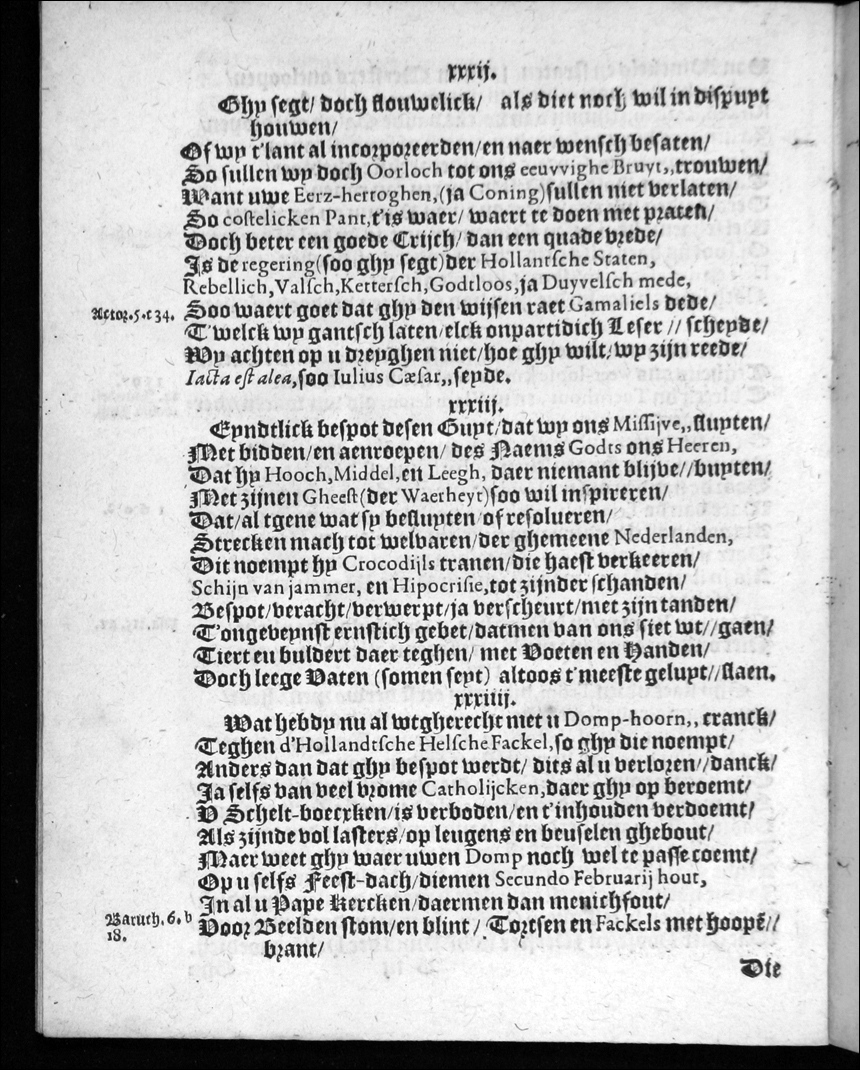 xxxij.
Ghy segt/ doch flouwelick/ als diet noch wil in dispuyt
houwen/
Of wy t'lant al incorporeerden/en naer wensch besaten/
So sullen wy doch Oorloch tot ons eeuvvighe Bruyt,,trouwen/
Want uwe Eerz-hertoghen,(ja Coning)sullen niet verlaten/
So costelicken Pant,t'is waer/ waert te doen met praten/
Doch beter een goede Crijch/ dan een quade vrede/
Is de regering(soo ghy segt)der Hollantsche Staten,
Rebellich,Valsch,Kettersch,Godtloos,ja Duyvelsch mede,
Actor.5.c 34. Soo waert goet dat ghy den wijsen raet Gamaliels dede/
T'welck wy gantsch laten/elck onpartidich Leser // scheyde/
Wy achten op u dreyghen niet/hoe ghy wilt/wy zijn reede/
Iacta est alea,soo Iulius Cæsar,,seyde.
xxxiij.
Eyndtlick bespot desen Guyt/dat wy ons Missijve,,sluyten/
Met bidden/en aenroepen/ des Naems Godts ons Heeren,
Dat hy Hooch,Middel,en Leegh, daer niemant blijve//buyten/
Met zijnen Gheest(der Waerheyt)soo wil inspireren/
Dat/al tgene wat sy besluyten/of resolueren/
Strecken mach tot welvaren/der ghemeene Nederlanden,
Dit noempt hy Crocodijls tranen/die haest verkeeren/
Schijn van jammer, en Hipocrisie,tot zijnder schanden/
Bespot/veracht/verwerpt/ja verscheurt/met zijn tanden/
T'ongeveynst ernstich gebet/datmen van ons siet wt//gaen/
Tiert en buldert daer teghen/ met Voeten en Handen/
Doch leege Vaten (somen seyt) altoos t'meeste geluyt//slaen.
xxxiiij.
Wat hebdy nu al wtgherecht met u Domp-hoorn,, cranck/
Teghen d'Hollandtsche Helsche Fackel,so ghy die noempt/
Anders dan dat ghy bespot werdt/ dits al u verloren//danck/
Ja selfs van veel vrome Catholijcken,daer ghy op beroemt/
V Schelt-boecxken/is verboden/en t'inhouden verdoemt/
Als zijnde vol lasters/op leugens en beuselen ghebout/
Maer weet ghy waer uwen Domp noch wel te passe coemt/
Op u selfs Feest-dach/diemen Secundo Februarij hout,
In al u Pape Kercken/daermen dan menichfout/
Baruch. 6. b
18.
Voor Beelden stom/en blint / Tortsen en Fackels met hoopẽ//
brant/
Die